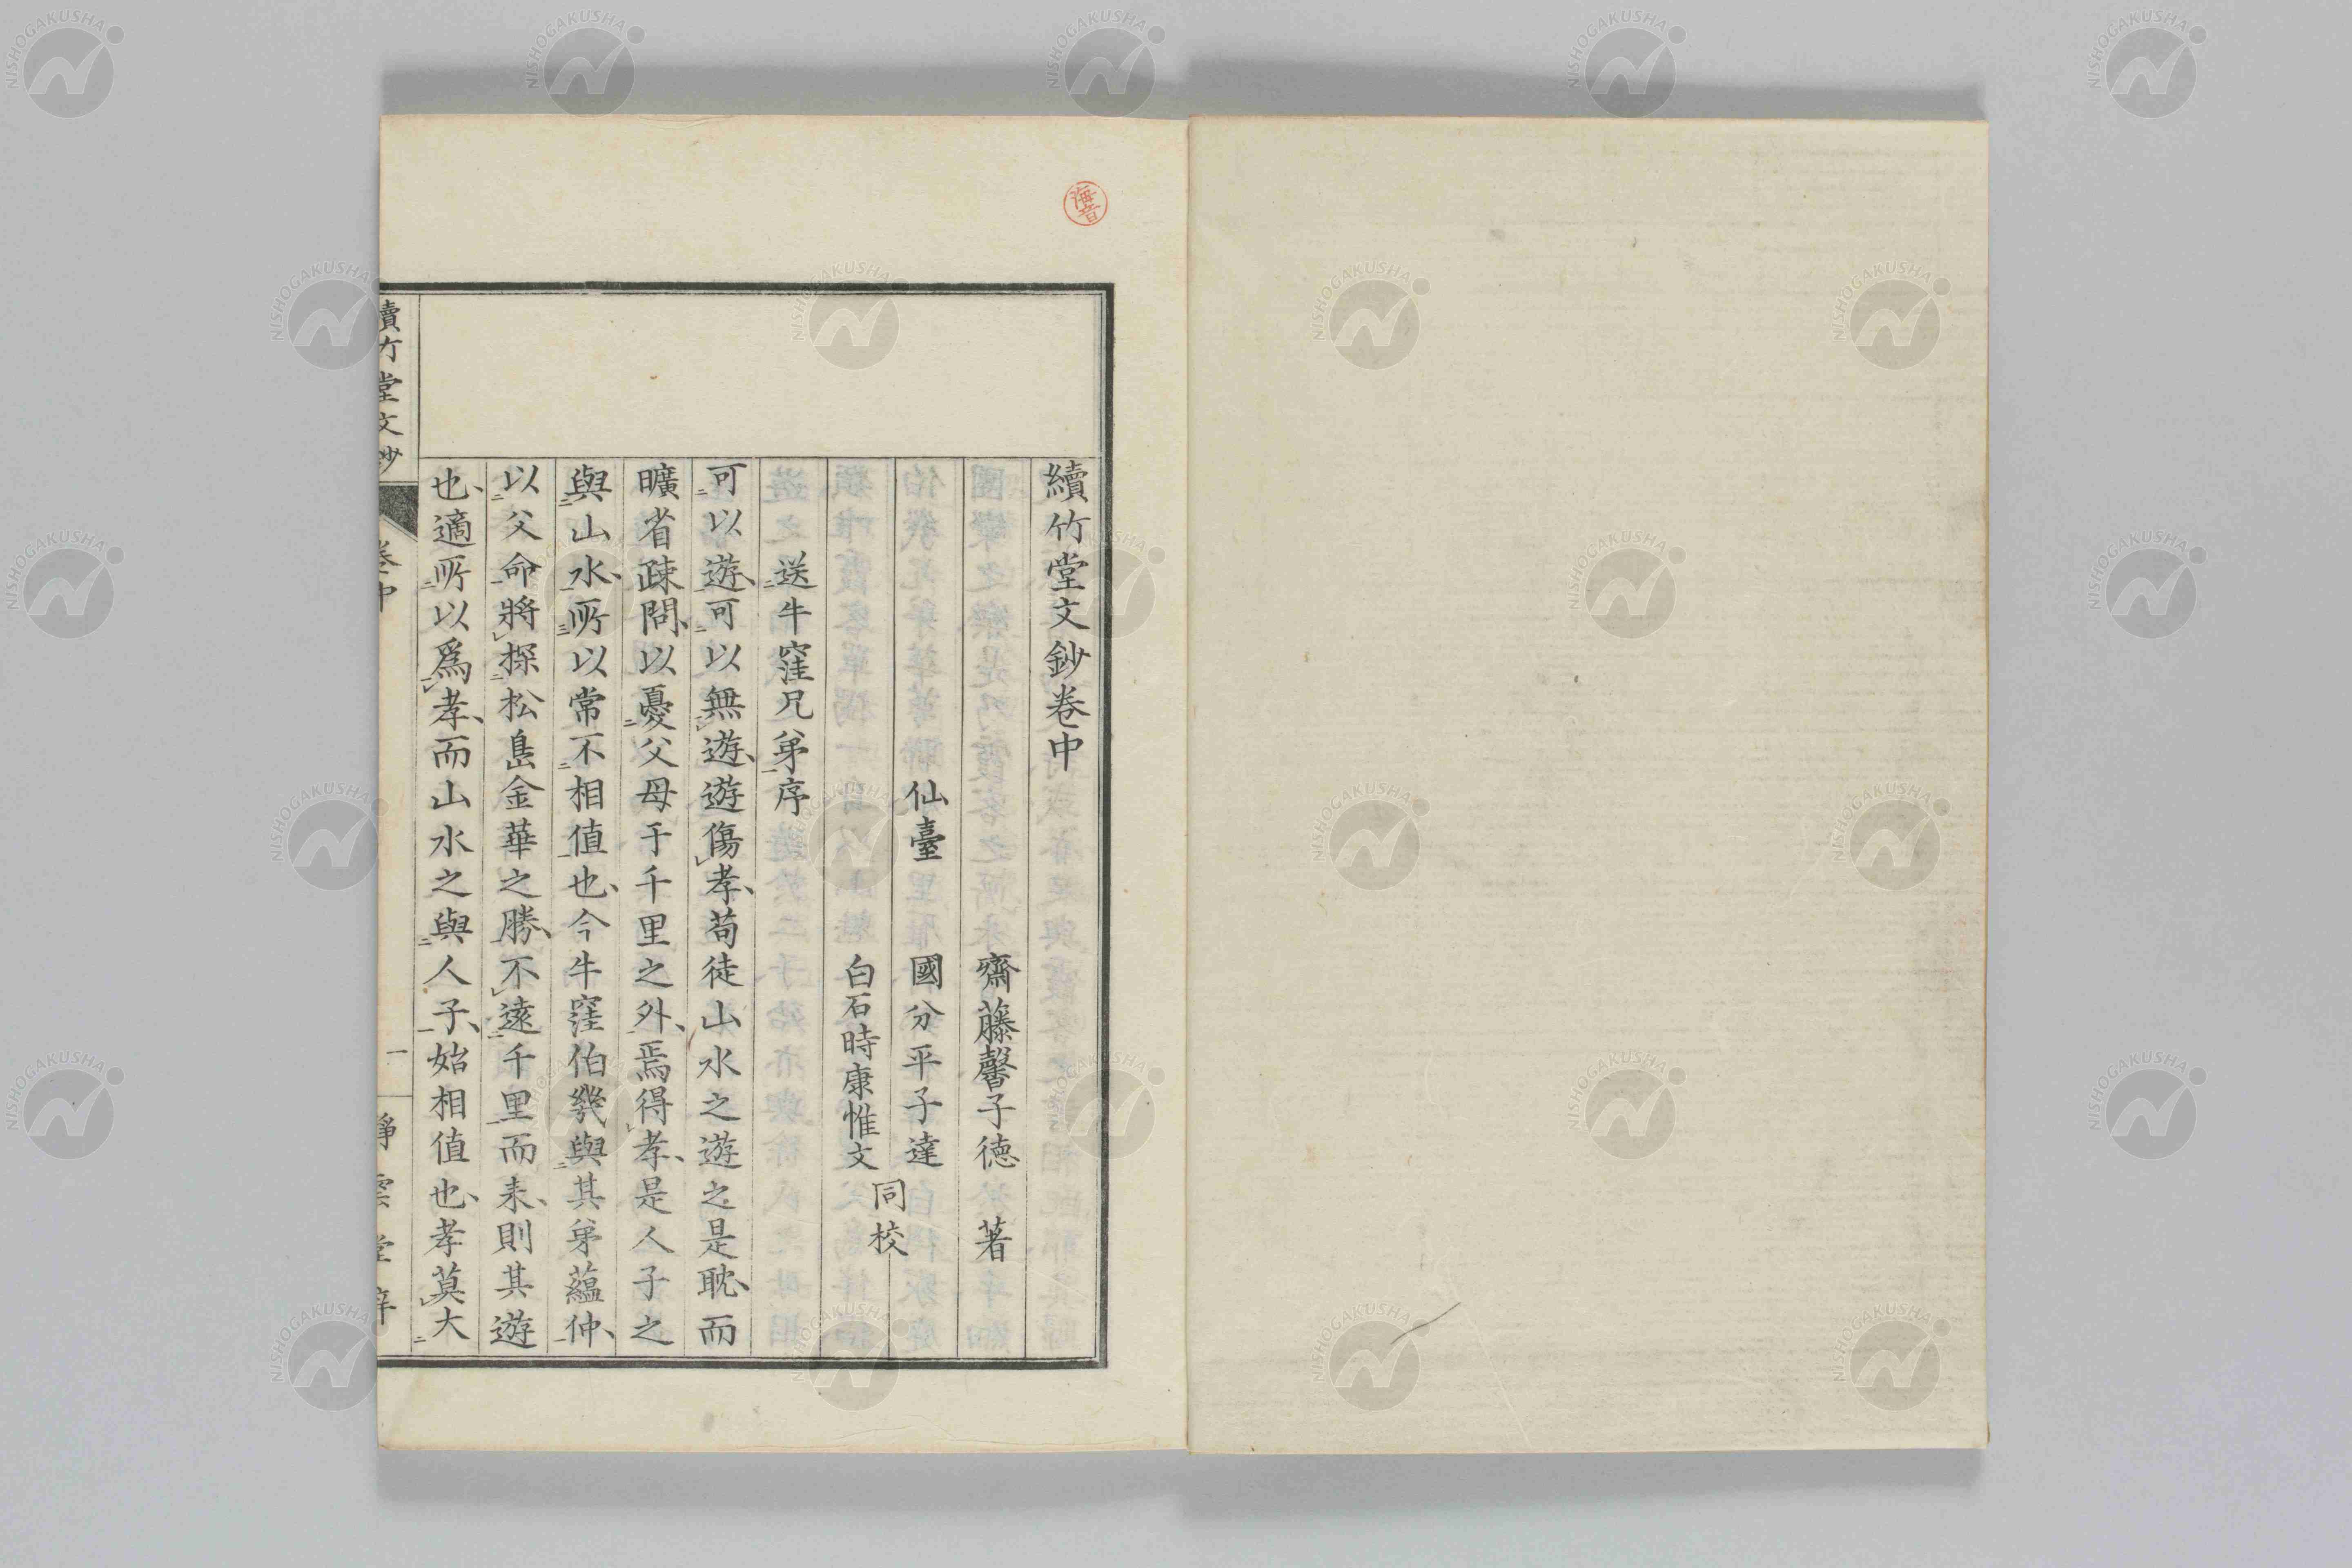 續竹堂文鈔卷中
齋藤馨子德 著
仙臺 國分平子達
白石時康惟文
同校
送牛窪兄弟序
可以遊、可以無遊、遊傷孝、苟徒山水之遊之是耽、而
曠省疎問、以憂父母于千里之外、焉得孝、是人子之
與山水、所以常不相值也、今牛窪伯幾與其弟蘊仲、
以父命將探松島金華之勝、不遠千里而来、則其遊
也、適所以爲孝、而山水之與人子、始相值也、孝莫大
續竹堂文鈔
卷中
一
靜雲堂梓
海音
NISHOGAKUSHA